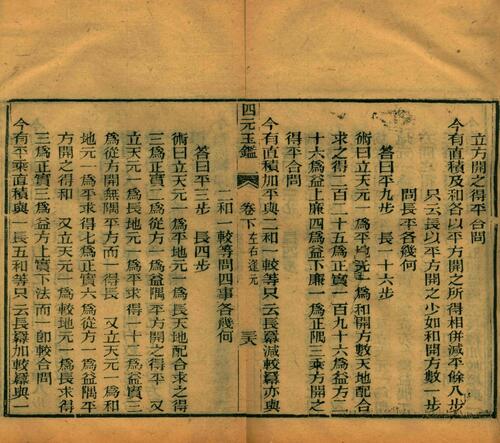 立方開之得平合問
今有直積及和各以平方開之所得相併減平餘八步
只云長以平方開之少如和開方數一步
問長平各幾何
荅曰平九步 長一十六步
術曰立天元一為平地元一為和開方數天地配合
求之得二百二十五為正實一百九十六為益方二
十六為益上廉四為益下廉一為正隅三乘方開之
得平合問
今有直積加平與二和一較等只云長冪減較冪亦與
四元玉鑑
卷下
左右逢元
三六
二和一較等問四事各幾何
荅曰平二步 長四步
術曰立天元一為平地元一為長天地配合求之得
三為正實二為從方一為益隅平方開之得平 又
立天元一為長地元一為平求得一十二為益實三
為從方開無隅平方而一得長 又立天元一為和
地元一為平求得七為正實六為從方一為益隅平
方開之得和 又立天元一為較地元一為長求得
三為正實三為益方上實下法而一卽較合問
今有平乘直積與一長五和等只云長冪加較冪與一